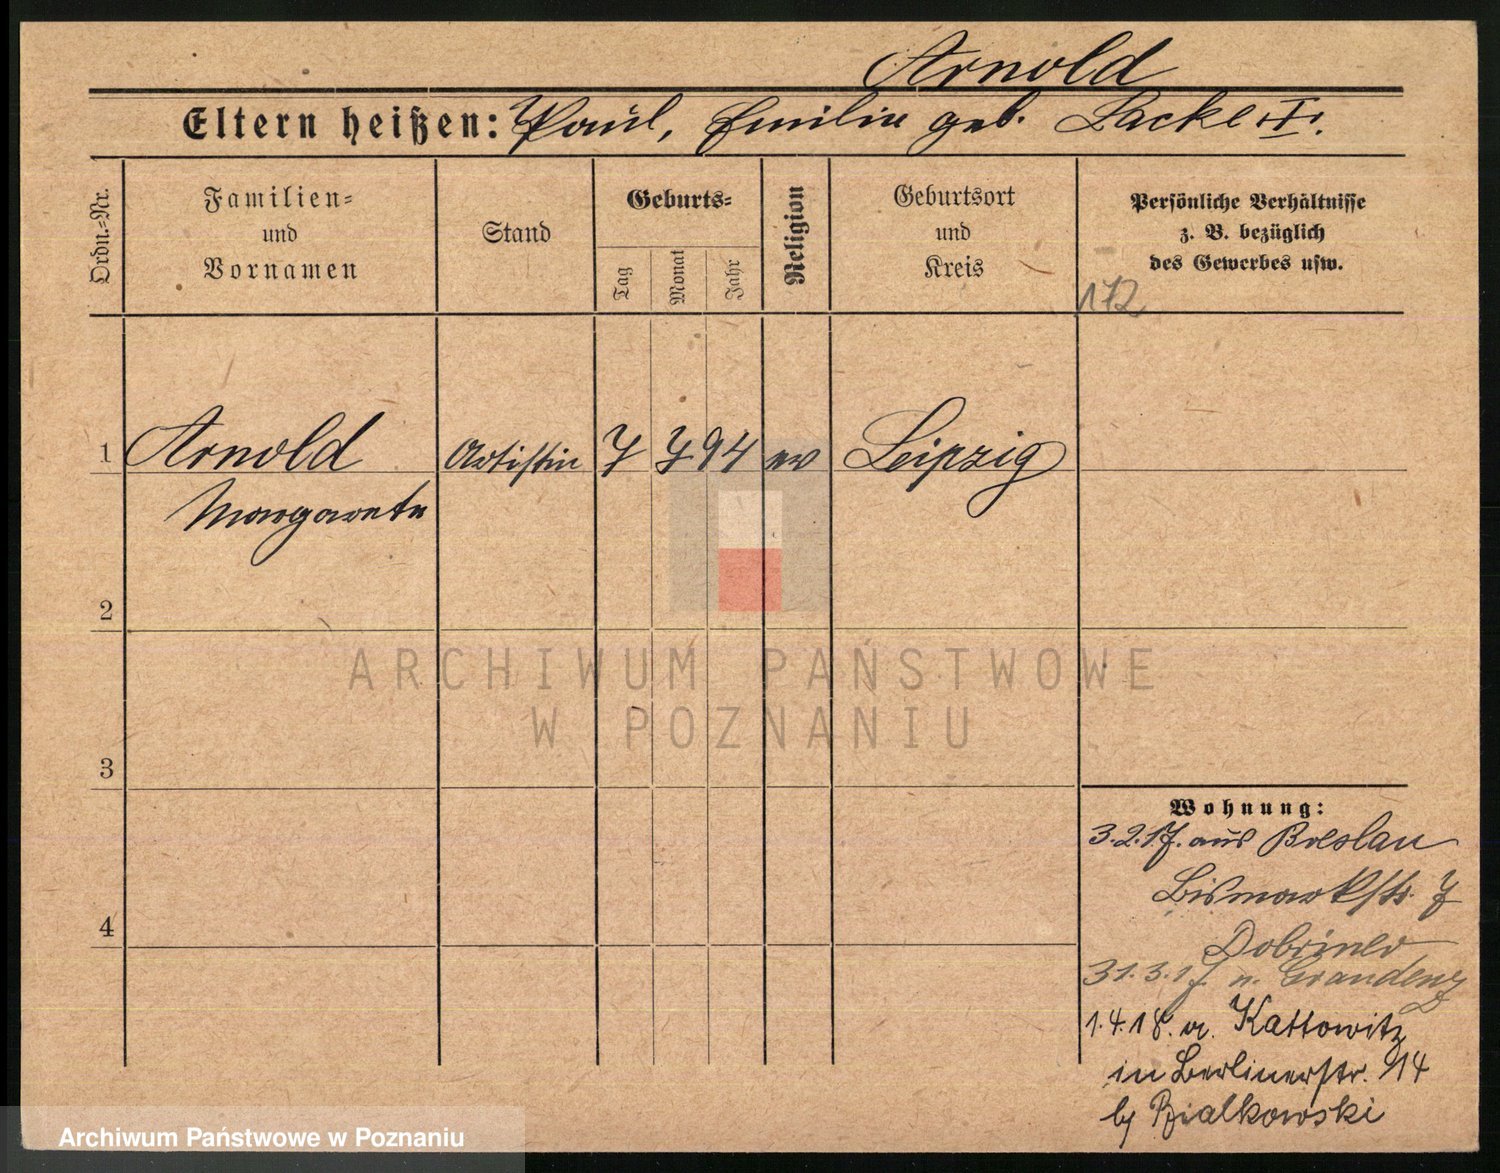 Arnold
Eltern heißen: Paul, Emilie geb. Lacke
Ordn.-Nr.
Familien-
und
Vornamen
Stand
Geburts-
Tag
Monat
Jahr
Religion
Geburtsort
und
Kreis
Persönliche Verhältnisse
z. B. bezüglich
des Gewerbes usw.
172
1 Arnold Artistin 7 7 94 ev Leipzig
Margarete
2
3
4
Wohnung:
3.2.17. aus Breslau
Bismarkstr. 7
31.3.17 n. Graudenz
1.4.18. a. Kattowitz
in Berlinerstr. 14
by Bialkowski
ARCHIWUM PAŃSTWOWE
W POZNANIU
Archiwum Państwowe w Poznaniu